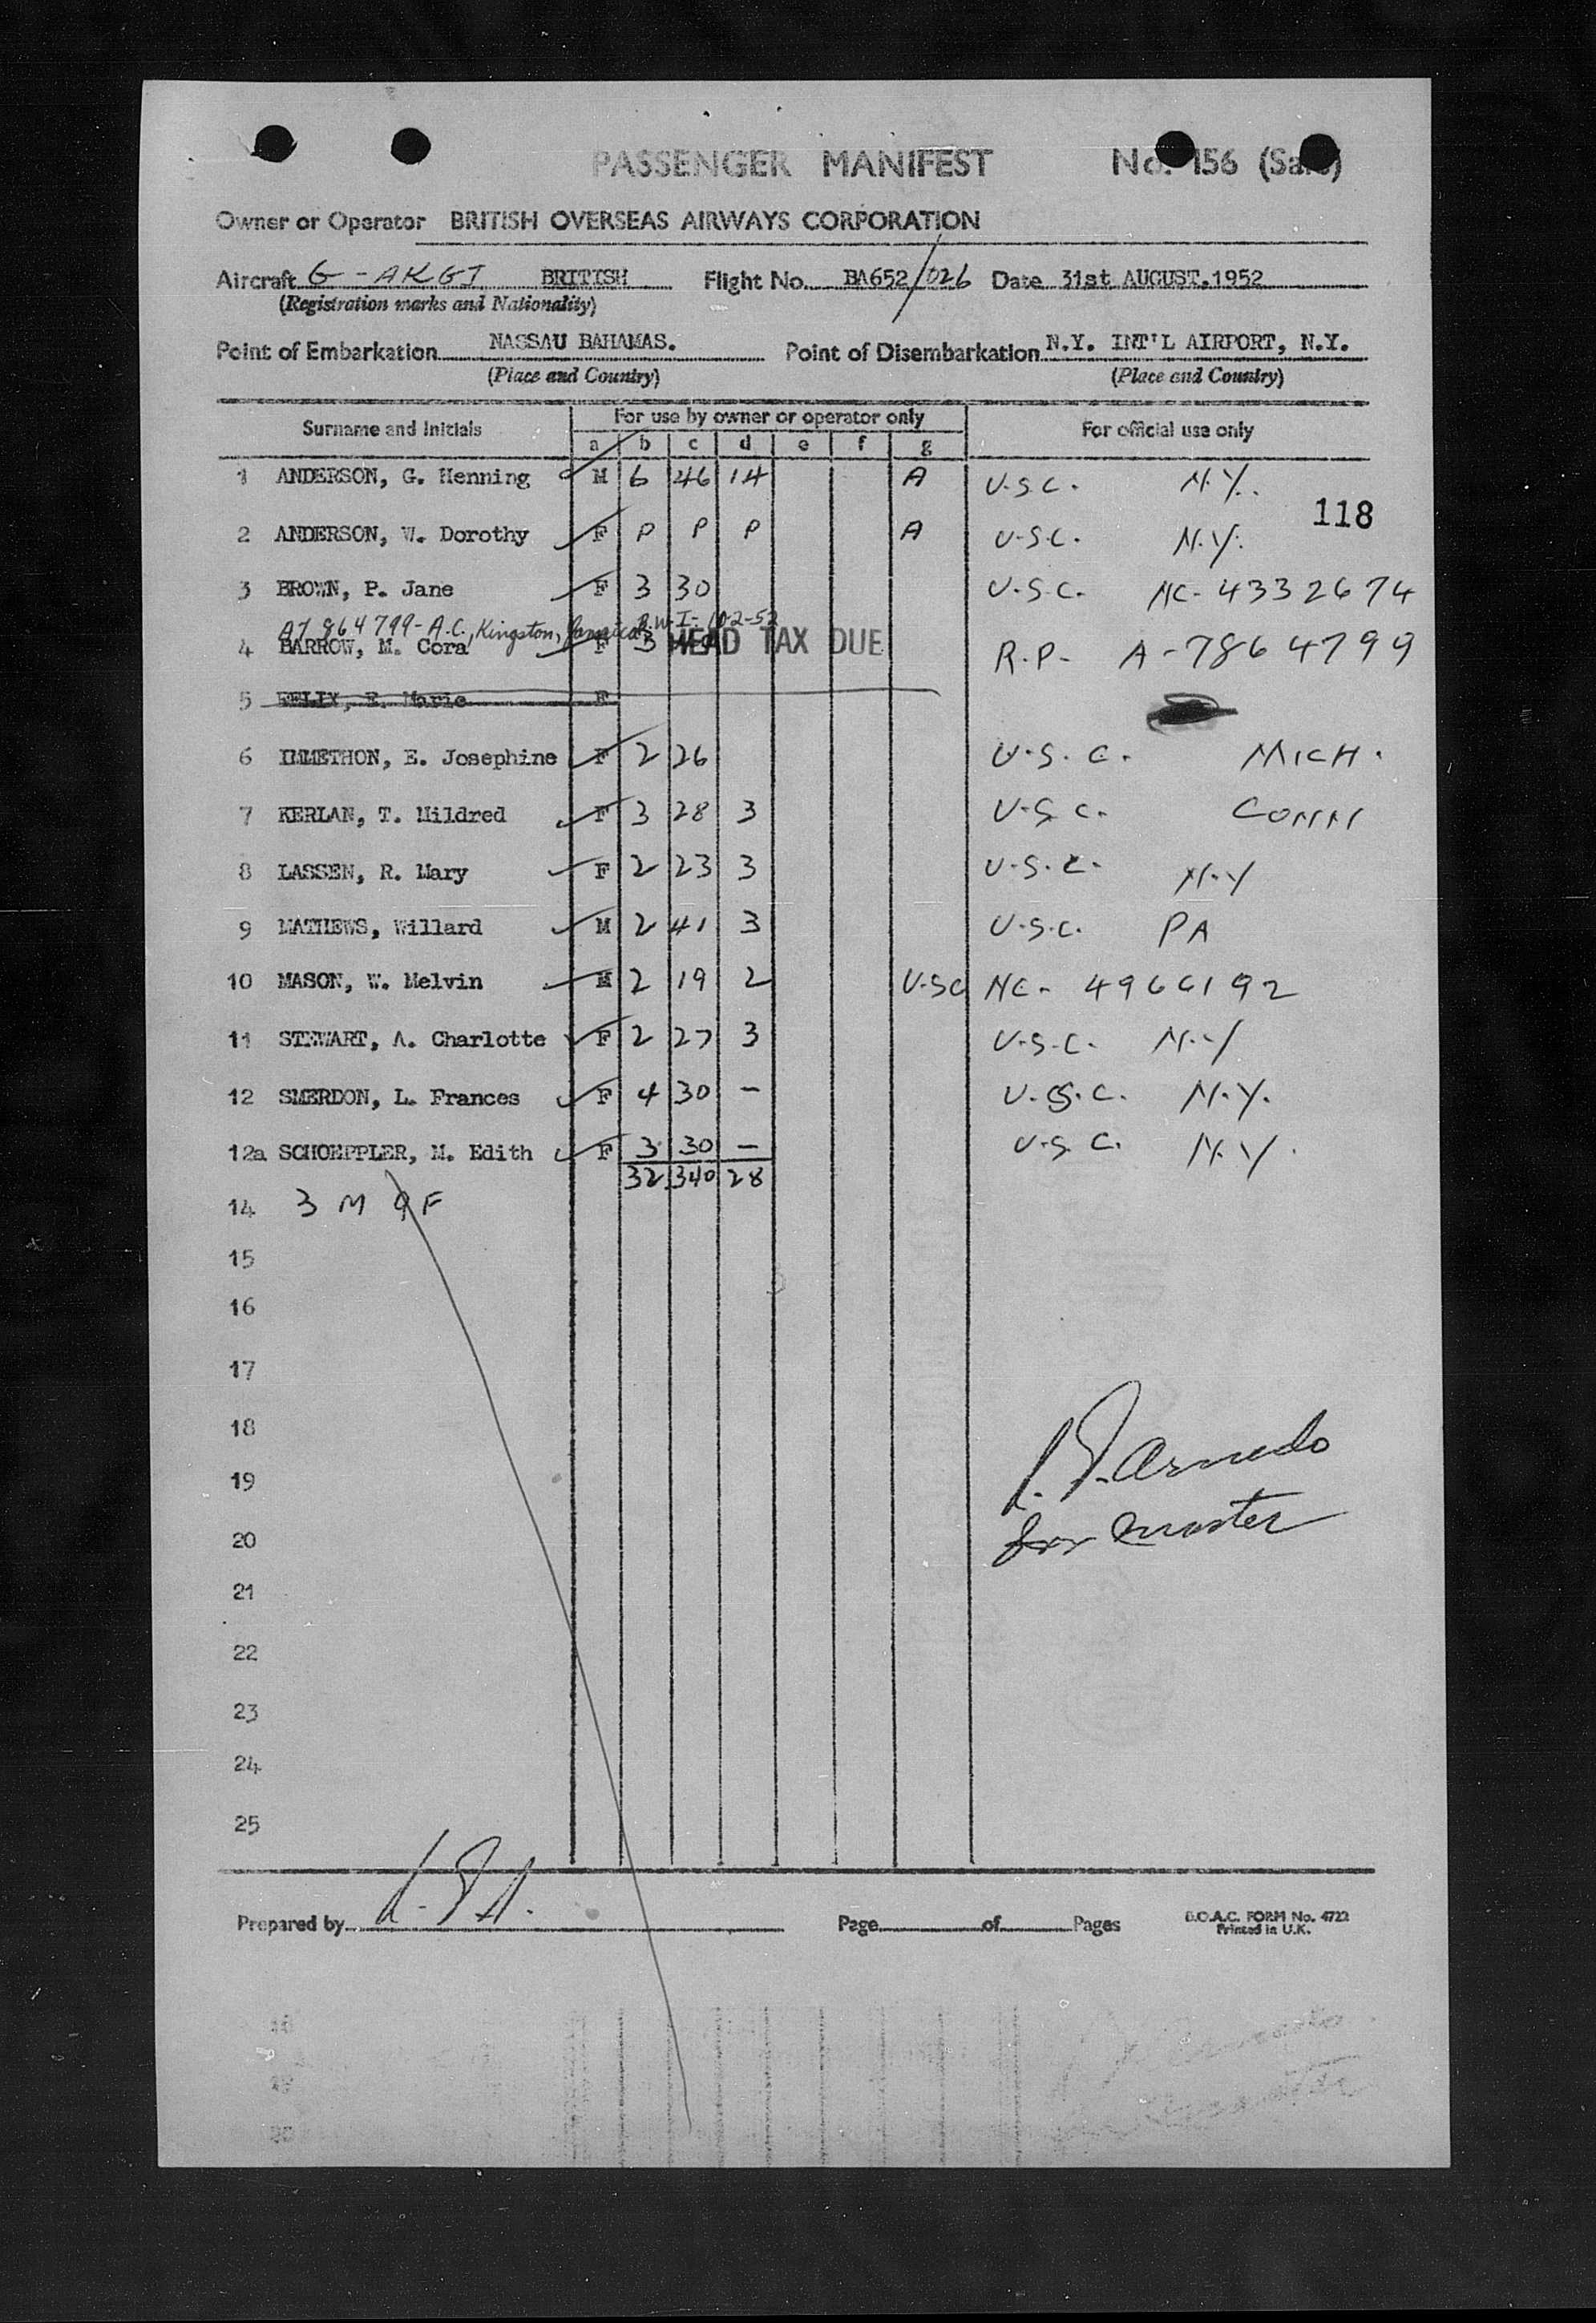 PASSENGER MANIFEST No. 156 (Sale)
Owner or Operator BRITISH OVERSEAS AIRWAYS CORPORATION
Aircraft G-AKGJ BRITISH Flight No. BA652/026 Date 31st AUGUST, 1952
(Registration marks and Nationality)
Point of Embarkation NASSAU BAHAMAS. Point of Disembarkation N.Y. INT'L AIRPORT, N.Y.
(Place and Country) (Place and Country)
Surname and Initials For use by owner or operator only For official use only
a b c d e f g
1 ANDERSON, G. Henning M 6 46 14 A U.S.C. N.Y.
118
2 ANDERSON, W. Dorothy F P P P A U.S.C. N.Y.
3 BROWN, P. Jane F 3 30 U.S.C. NC-4332674
A7864799-A.C., Kingston, Jamaica B.W.I.
4 BARROW, M. Cora F 3 HEAD TAX DUE R.P- A-7864799
5 FELIX, E. Marie F
6 IMMETHON, E. Josephine F 2 26 U.S.C. MICH.
7 KERLAN, T. Mildred F 3 28 3 U.S.C. CONN
8 LASSEN, R. Mary F 2 23 3 U.S.C. N.Y
9 MATHEWS, Willard M 2 41 3 U.S.C. PA
10 MASON, W. Melvin M 2 19 2 U.SC NC- 4966192
11 STEWART, A. Charlotte F 2 27 3 U.S.C. N.Y
12 SMERDON, L. Frances F 4 30 - U.S.C. N.Y.
12a SCHOEPPLER, M. Edith F 3 30 - U.S.C. N.Y.
32 340 28
14 3 M 9 F
15
16
17
18
19
20
for Master
21
22
23
24
25
Prepared by Page of Pages B.O.A.C. FORM No. 4722
Printed in U.K.